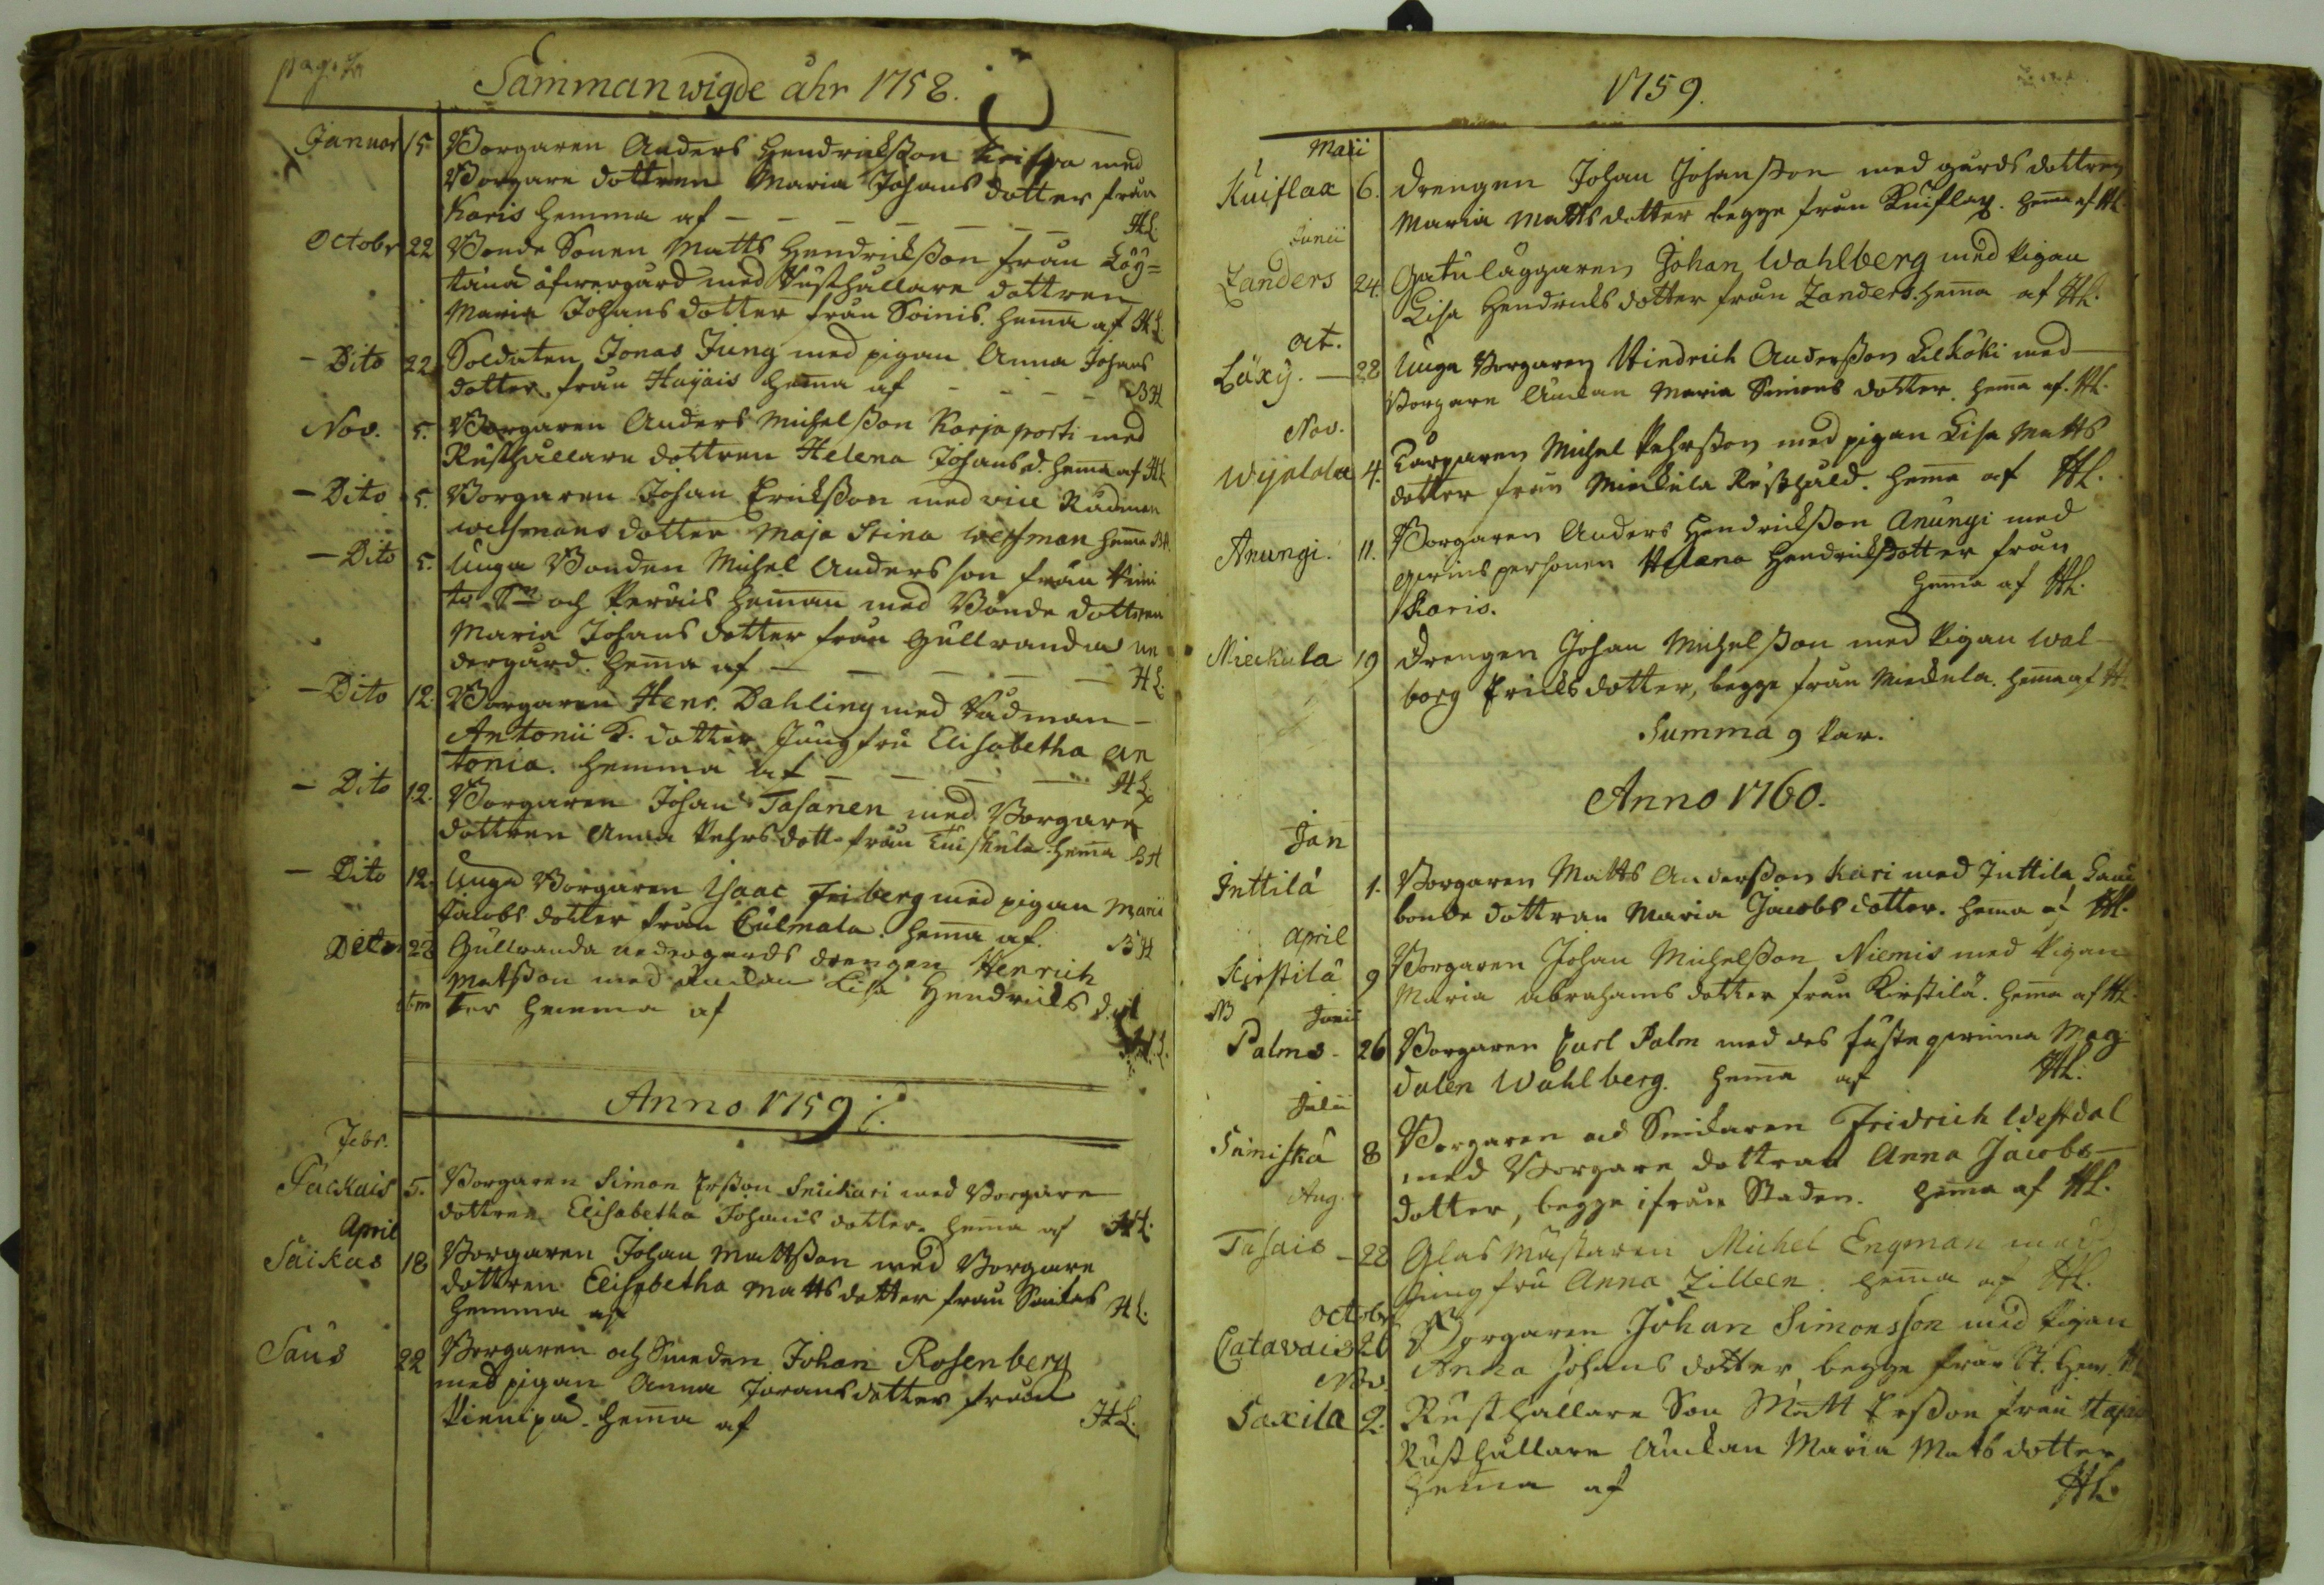 Sammanwigde åhr 1758.
Januar 15. Borgaren Anders Hendrichsson med
Borgare dottren Maria Johans dotter från
Karis hemma af HL.
Octobr 22 Bonde Sonen Matts Hendrichsson från Löy=
täne öfwergård med Rusthållare dottren
Maria Johans dotter från Soinis. hema af HL.
- Dito 22 Soldaten Jonas Jung med pigan Anna Johans
dotter från Hayais hema af BH
Nov. 5. Borgaren Anders Michelsson Karjaporti med
Rusthållare dottren Helena Johansd. hema af HL
- Dito 5. Borgaren Johan Ericksson med vice Rådman
Westmans dotter Maja Stina Westman hema BH.
- Dito 5. Unga Bonden Michel Andersson från
och hemman med Bonde dottren
Maria Johans dotter från Gullranda ne
dergård. hema af HL.
- Dito 12. Borgaren Henr. Dahling med Rådman
Antonii S. dotter Jungfru Elisabetha An
tonia. hemma af HL.
- Dito 12. Borgaren Johan Tasanen med Borgare
dottren Anna Pehrs dott. från hema BH
- Dito 12. Unga Borgaren Isaac Friberg med pigan Maria
Jacobs dotter från Culmala. hema af. BH
Dito 23 Gullranda nedergårds drengen Henrich
Matsson med Enckan Lisa Hendrichs dot
ter hemma af HL.
Anno 1759
Febr.
Packais 5. Borgaren Simon Ersson Snickari med Borgare
dottren Elisabetha Johans dotter. hema af HL.
April
Saikas 18 Borgaren Johan Mattsson med Borgare
dottren Elisabetha Matts dotter från Saikas
hemma af HL.
Saus 22 Borgaren och Smeden Johan Rosenberg
med pigan Anna Jöransdotter från
hema af HL.
1759.
Maii
Kuiflax 6. Drengen Johan Johansson med gårds dottren
Maria Mattsdotter begge från Kuiflax. hema af HL
Junii
Zanders 24. Gatuläggaren Johan Wahlberg med Pigan
Lisa Hendrichs dotter från Zanders. hema af HL.
Oct.
Löxy. 28 Unga Borgaren Hindrich Andersson med
Borgare Enckan Maria Simons dotter. hema af. HL.
Nov.
Wijalala 4. Torparen Michel Pehrsson med pigan Lisa Matts
dotter från Mieckula Rusthåld. hema af HL.
Anungi. 11. Borgaren Anders Hendricksson Anungi med
qwinspersonen Helena Hendricksdotter från
Karis. hema af HL.
Mieckula 19 Drengen Johan Michelsson med Pigan Wal
borg Ericksdotter, begge från Mieckula. hema af H
Summa 9 Par.
Anno 1760.
Jan
Inttilä 1. Borgaren Matts Andersson Kari med Inttila
bonde dottran Maria Jacobs dotter. hema af HL.
April
Kirstilä 9 Borgaren Johan Michelsson Niemis med Pigan
Maria Abrahams dotter från Kirstilä. hema af HL.
NB Junii
Palms - 26 Borgaren Carl Palm med des fästeqwinna Mag
dalen Wahlberg. hema af HL.
Julii
Suniska 8 Borgaren och Snickaren Fridrich Westdal
med Borgare dottran Anna Jacobs
dotter, begge ifrån Staden. hema af HL.
Aug.
Tasais - 28 Glas Mästaren Michel Engman med
Jungfru Anna Zilleen. hema af HL.
Octobr
Catavais 26 Borgaren Johan Simonsson med Pigan
Anna Johans dotter, begge från St. Henr.
Nov.
Saxila 2. Rusthållare Son Matt Ersson från
Rusthållare Enckan Maria Mats dotter
hema af HL.